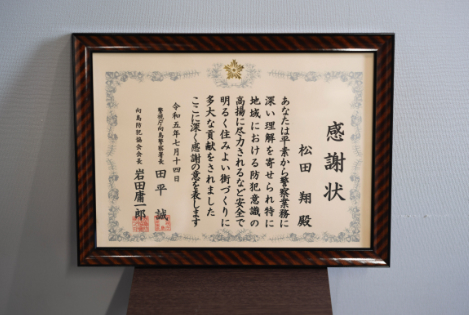 感謝状
松田 翔 殿
あなたは平素から警察業務に
深い理解を寄せられ特に
地域における防犯意識の
高揚に尽力されるなど安全で
明るく住みよい街づくりに
多大な貢献をされました
ここに深く感謝の意を表します
令和五年七月十四日
警視庁向島警察署長 田平 誠
向島防犯協会会長 岩田庸一郎